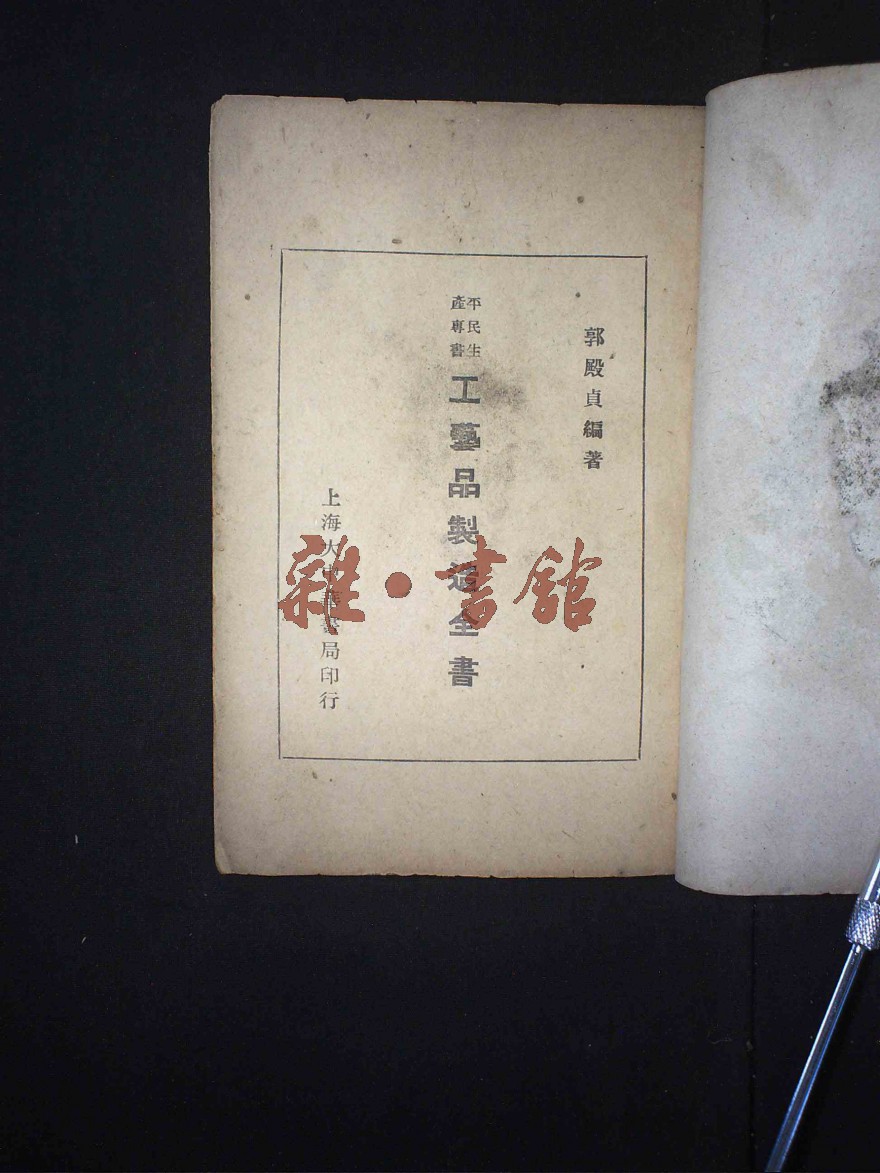 郭殿貞編著
平民生
產專書
工藝品製造全書
上海大中華書局印行
雜·書館